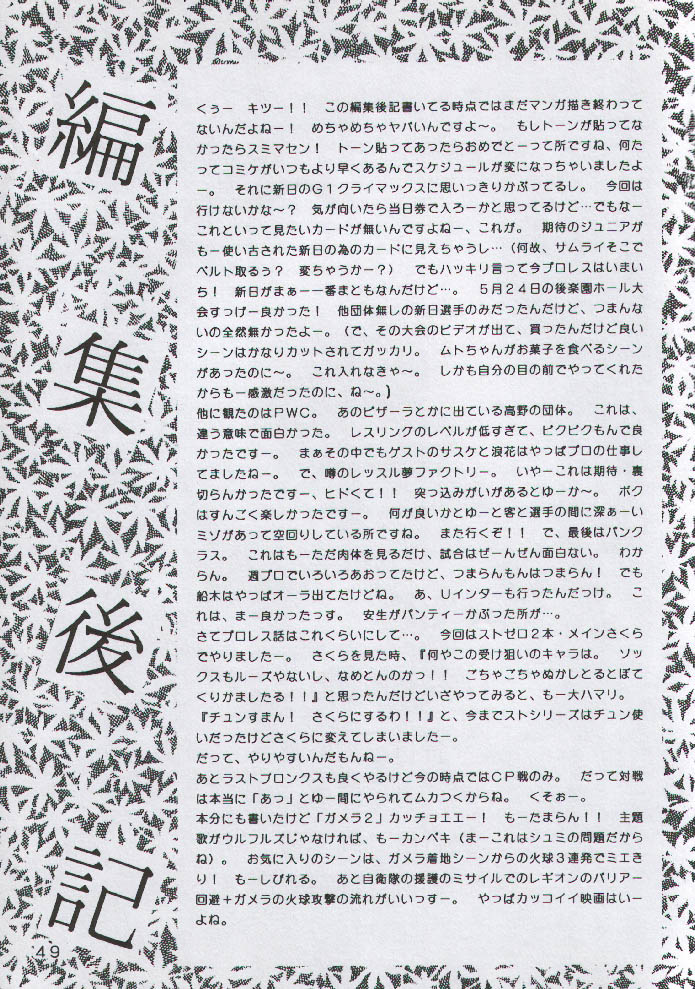 編集後記
くぅー　キツー！！　この編集後記書いてる時点ではまだマンガ描き終わって
ないんだよねー！　めちゃめちゃヤバいんですよ〜。　もしトーンが貼ってな
かったらスミマセン！　トーン貼ってあったらおめでとーって所ですね、何た
ってコミケがいつもより早くあるんでスケジュールが変になっちゃいましたよ
ー。　それに新日のG１クライマックスに思いっきりかぶってるし。　今回は
行けないかな〜？　気が向いたら当日券で入ろーかと思ってるけど…でもなー
これといって見たいカードが無いんですよねー、これが。　期待のジュニアが
もー使い古された新日の為のカードに見えちゃうし…（何故、サムライそこで
ベルト取るぅ？　変ちゃうかー？）　でもハッキリ言って今プロレスはいまい
ち！　新日がまぁーー番まともなんだけど…。　５月２４日の後楽園ホール大
会すっげー良かった！　他団体無しの新日選手のみだったんだけど、つまんな
いの全然無かったよー。（で、その大会のビデオが出て、買ったんだけど良い
シーンはかなりカットされてガッカリ。　ムトちゃんがお菓子を食べるシーン
があったのに〜。　これ入れなきゃ〜。　しかも自分の目の前でやってくれた
からもー感激だったのに、ね〜。)
他に観たのはPWC。　あのピザーラとかに出ている高野の団体。　これは、
違う意味で面白かった。　レスリングのレベルが低すぎて、ピクピクもんで良
かったですー。　まぁその中でもゲストのサスケと浪花はやっぱプロの仕事し
てましたねー。　で、噂のレッスル夢ファクトリー。　いやーこれは期待・裏
切らんかったですー、ヒドくて！！　突っ込みがいがあるとゆーか〜。　ボク
はすんごく楽しかったですー。　何が良いかとゆーと客と選手の間に深ぁーい
ミゾがあって空回りしている所ですね。　また行くぞ！！　で、最後はパンク
ラス。　これはもーただ肉体を見るだけ、試合はぜーんぜん面白ない。　わか
らん。　週プロでいろいろあおってたけど、つまらんもんはつまらん！　でも
船木はやっぱオーラ出てたけどね。　あ、Uインターも行ったんだっけ。　こ
れは、まー良かったっす。　安生がパンティーかぶった所が…。
さてプロレス話はこれくらいにして…。　今回はストゼロ２本・メインさくら
でやりましたー。　さくらを見た時、『何やこの受け狙いのキャラは。　ソッ
クスもルーズやないし、なめとんのかっ！！　ごちゃごちゃぬかしとるとぼて
くりかましたる！！』と思ったんだけどいざやってみると、もー大ハマリ。
『チュンすまん！　さくらにするわ！！』と、今までストシリーズはチュン使
いだったけどさくらに変えてしまいましたー。
だって、やりやすいんだもんねー。
あとラストブロンクスも良くやるけど今の時点ではCP戦のみ。　だって対戦
は本当に「あっ」とゆー間にやられてムカつくからね。　くそぉー。
本分にも書いたけど「ガメラ２」カッチョエエー！　もーたまらん！！　主題
歌がウルフルズじゃなければ、もーカンペキ（まーこれはシュミの問題だから
ね）。　お気に入りのシーンは、ガメラ着地シーンからの火球３連発でミエき
り！　もーしびれる。　あと自衛隊の援護のミサイルでのレギオンのバリアー
回避＋ガメラの火球攻撃の流れがいいっすー。　やっぱカッコイイ映画はいー
よね。
49